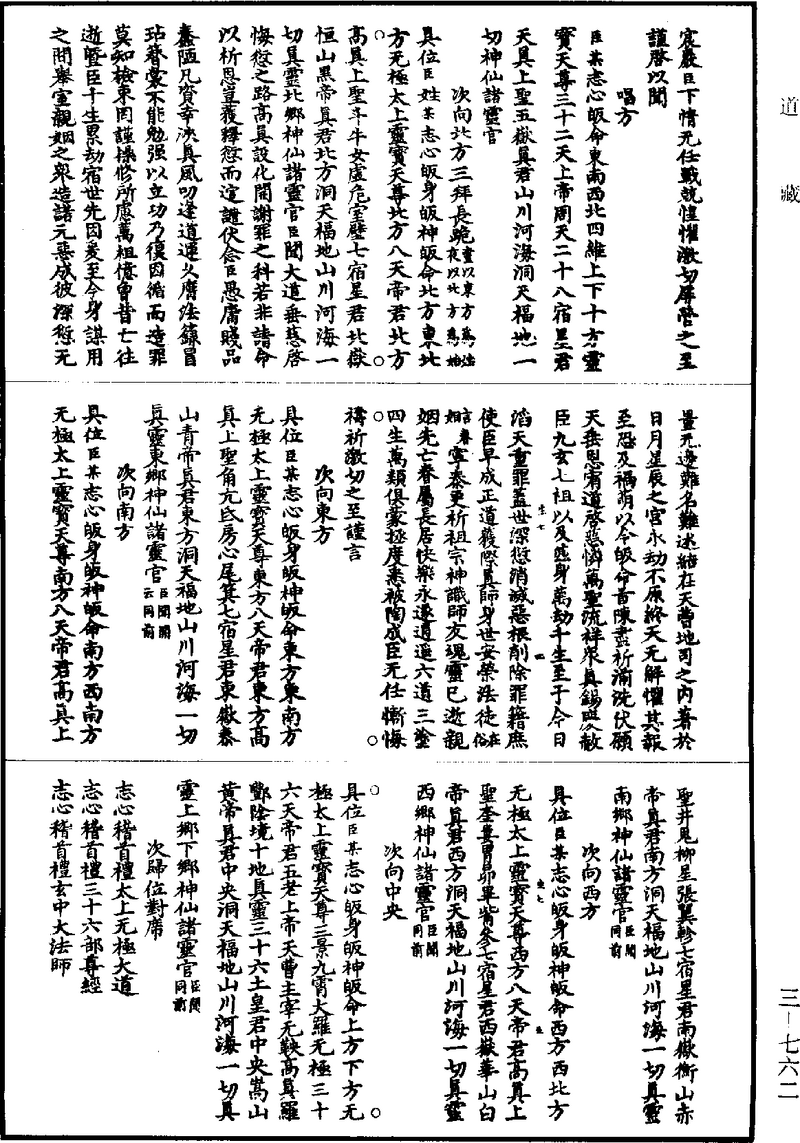 道藏
三－七六二
宸嚴臣下情无任戰兢惶懼激切屏營之至
謹啓以聞
唱方
臣某志心皈命東南西北四維上下十方靈
寶天尊三十二天上帝周天二十八宿星君
天真上聖五嶽真君山川河海洞天福地一
切神仙諸靈官
次向北方三拜長跪晝以東方為始夜以北方為始
具位臣姓某志心皈身皈神皈命北方東北
方无極太上靈寶天尊北方八天帝君北方
高真上聖斗牛女虛危室壁七宿星君北嶽
恒山黑帝真君北方洞天福地山川河海一
切真靈北鄉神仙諸靈官臣聞大道垂慈啓
悔愆之路高真設化開謝罪之科若非請命
以祈恩豈獲釋愆而逭譴伏念臣愚庸賤品
蠢陋凡資幸浹真風叨逢道運久膺法籙冒
玷眷蒙不能勉强以立功乃復因循而造罪
莫知檢束罔謹操修所慮萬祖億曾昔亡往
逝曁臣千生累劫宿世先因爰至今身謀用
之間舉室親姻之衆造諸元惡成彼深愆无
量无邊難名難述結在天曹地司之內著於
日月星辰之宮永劫不原終天无解懼其報
至恐及禍萌以今皈命首陳盡祈湔洗伏願
天垂恩宥道啓慈憐萬聖流祥衆真錫與赦
臣九玄七祖以及惡身萬劫千生至于今日
滔天重罪蓋世深愆消滅惡根削除罪籍庶
使臣早成正道獲際真師身世安榮法徒在俗
言眷姻寧泰更祈祖宗神識師友魂靈已逝親
姻先亡眷屬長居快樂永遂逍遥六道三塗
四生萬類俱蒙拯度悉被陶成臣无任慚悔
禱祈激切之至謹言
次向東方
具位臣某志心皈身皈神皈命東方東南方
无極太上靈寶天尊東方八天帝君東方高
真上聖角亢氐房心尾箕七宿星君東嶽泰
山青帝真君東方洞天福地山川河海一切
真靈東鄉神仙諸靈官臣聞闕云同前
次向南方
具位臣某志心皈身皈神皈命南方西南方
无極太上靈寶天尊南方八天帝君高真上
聖井鬼柳星張翼軫七宿星君南嶽衡山赤
帝真君南方洞天福地山川河海一切真靈
南鄉神仙諸靈官臣聞同前
次向西方
具位臣某志心皈身皈神皈命西方西北方
无極太上靈寶天尊西方八天帝君高真上
聖奎婁胃昴畢觜參七宿星君西嶽華山白
帝真君西方洞天福地山川河海一切真靈
西鄉神仙諸靈官臣聞同前
次向中央
具位臣某志心皈身皈神皈命上方下方无
極太上靈寶天尊三景九霄大羅无極三十
六天帝君五老上帝天曹主宰无鞅高真羅
酆陰境十地真靈三十六土皇君中央嵩山
黃帝真君中央洞天福地山川河海一切真
靈上鄉下鄉神仙諸靈官臣聞同前
次歸位對席
志心稽首禮太上无極大道
志心稽首禮三十六部尊經
志心稽首禮玄中大法師